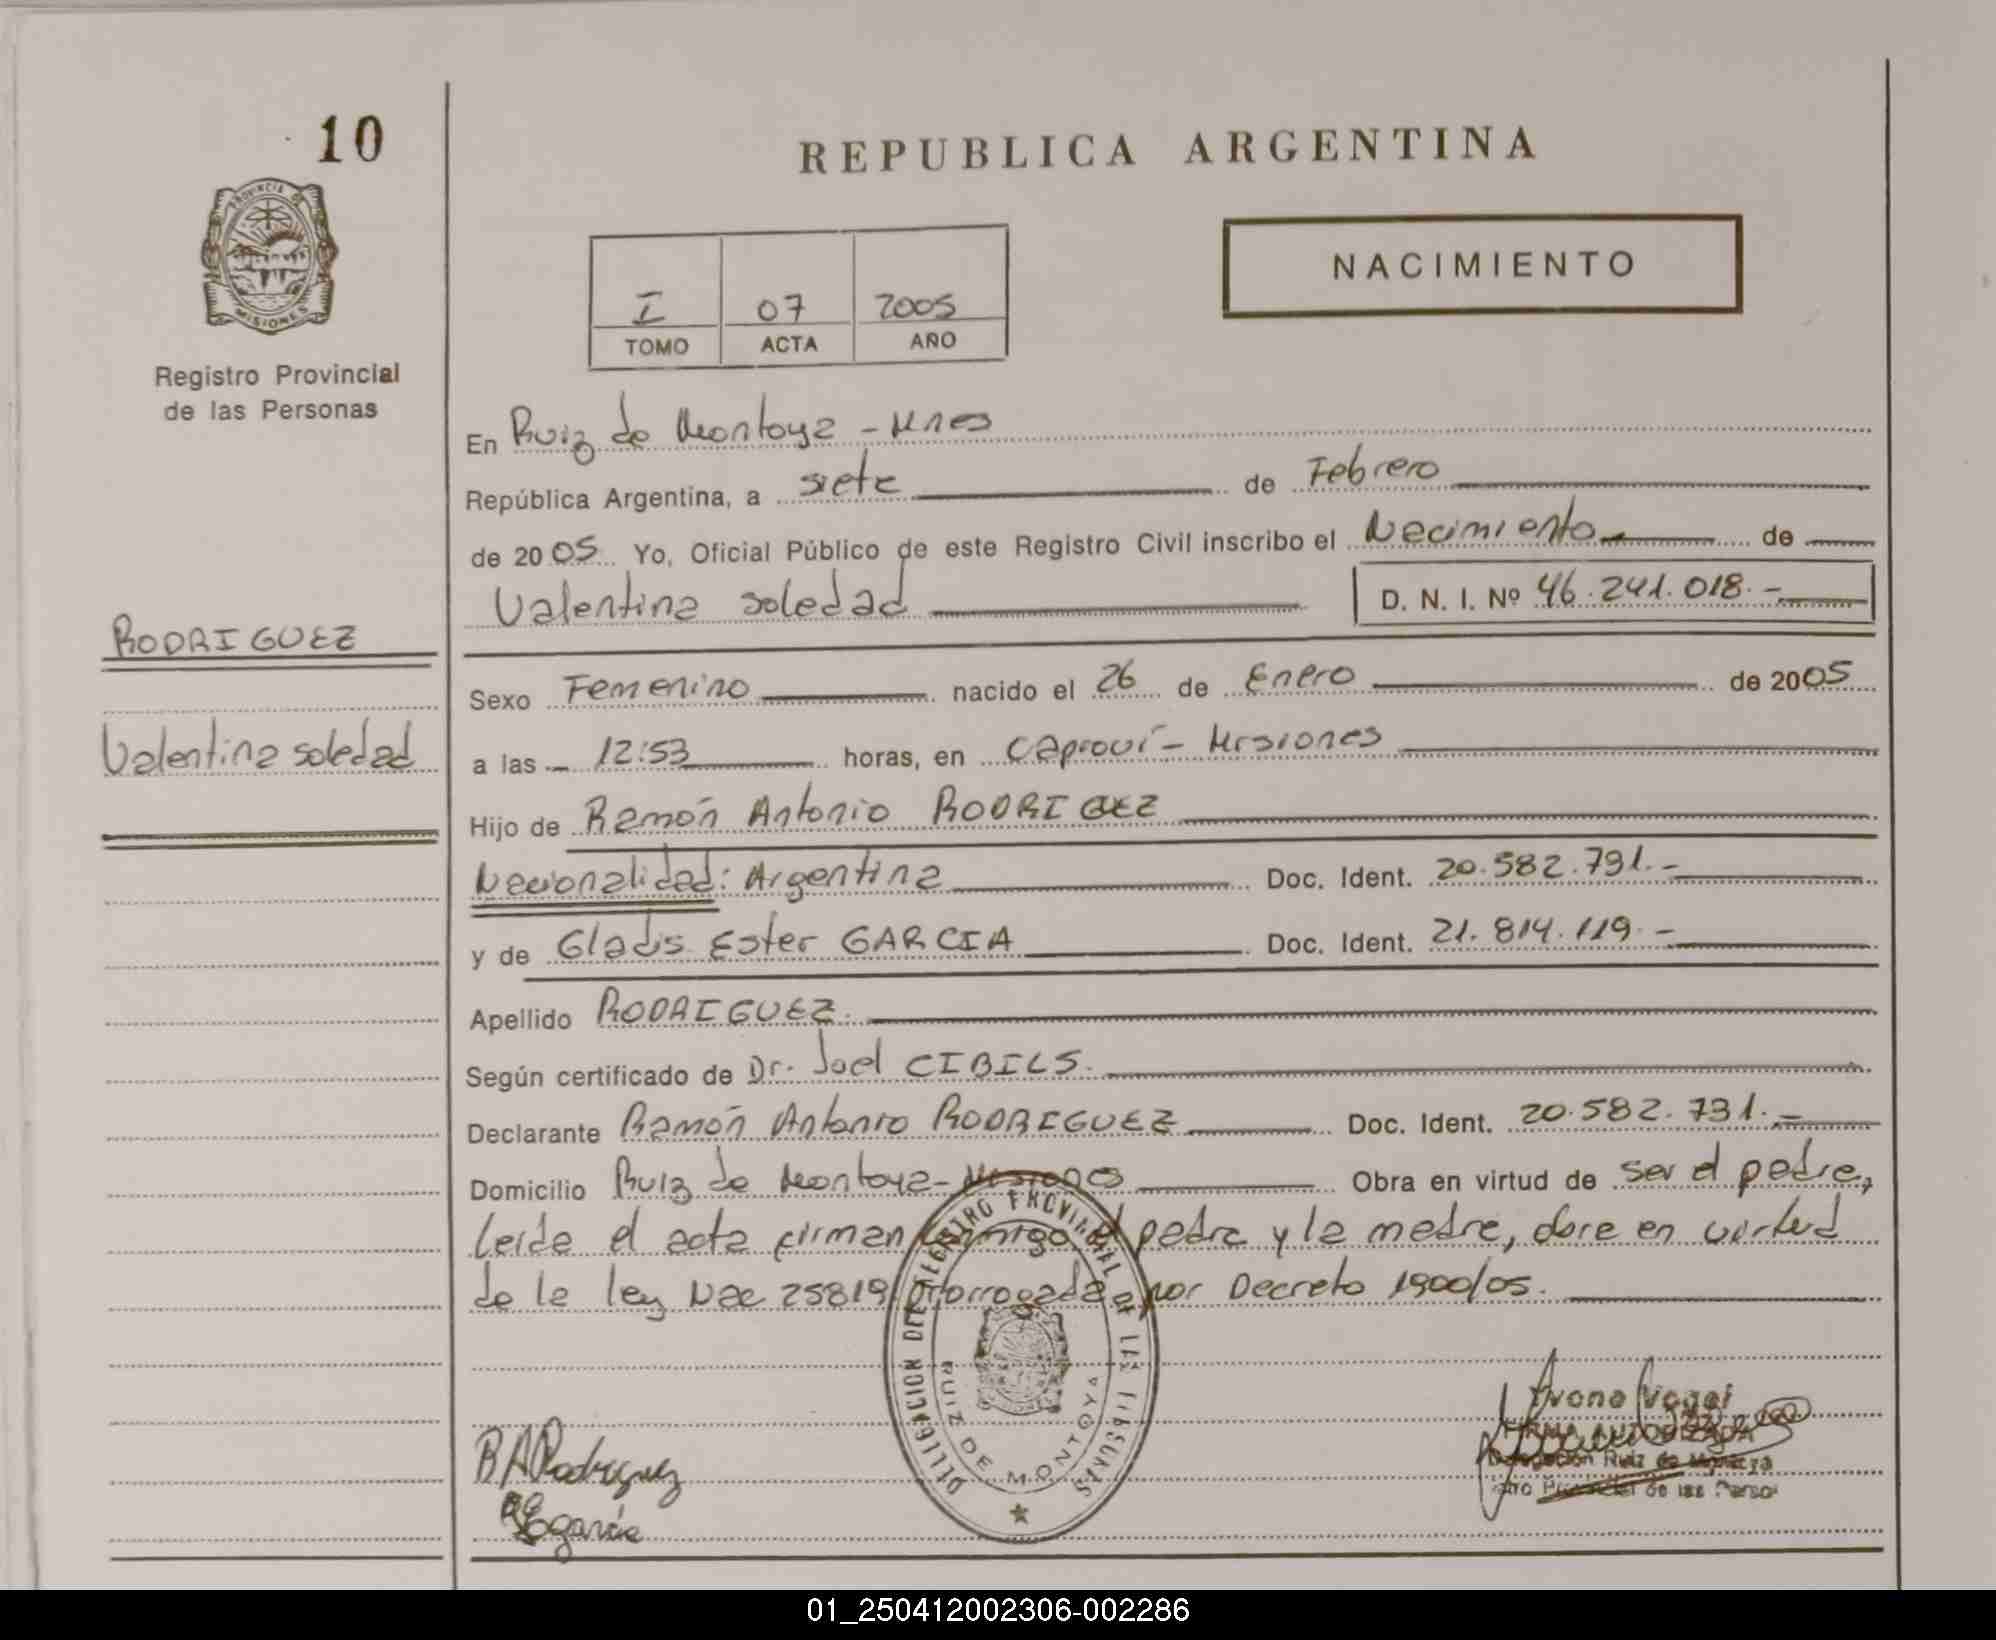 10
REPUBLICA ARGENTINA
PROVINCIA DE MISIONES
NACIMIENTO
I 07 2005
TOMO ACTA AÑO
Registro Provincial
de las Personas
En Ruiz de Montoya - Mnes
República Argentina, a siete de Febrero
de 2005 Yo, Oficial Público de este Registro Civil inscribo el Nacimiento de
Valentina Soledad D. N. I. Nº 46.241.018.-
RODRIGUEZ
Valentina Soledad
Sexo Femenino nacido el 26 de Enero de 2005
a las 12:53 horas, en Capioví - Misiones
Hijo de Ramón Antonio RODRIGUEZ
Nacionalidad: Argentina Doc. Ident. 20.582.731.-
y de Gladis Ester GARCIA Doc. Ident. 21.814.119.-
Apellido RODRIGUEZ.
Según certificado de Dr. Joel CIBILS.
Declarante Ramón Antonio RODRIGUEZ Doc. Ident. 20.582.731.-
Domicilio Ruiz de Montoya - Misiones Obra en virtud de ser el padre,
leida el acta firman conmigo el padre y la madre, obre en virtud
de la ley Nac 25819 Prorrogada por Decreto 1900/05.
DELEGACION DEL REGISTRO PROVINCIAL DE LAS PERSONAS
RUIZ DE MONTOYA
R A Rodriguez
garcia
FIRMA AUTORIZADA
Delegación Ruiz de Montoya
Provincial de las Perso
01_250412002306-002286